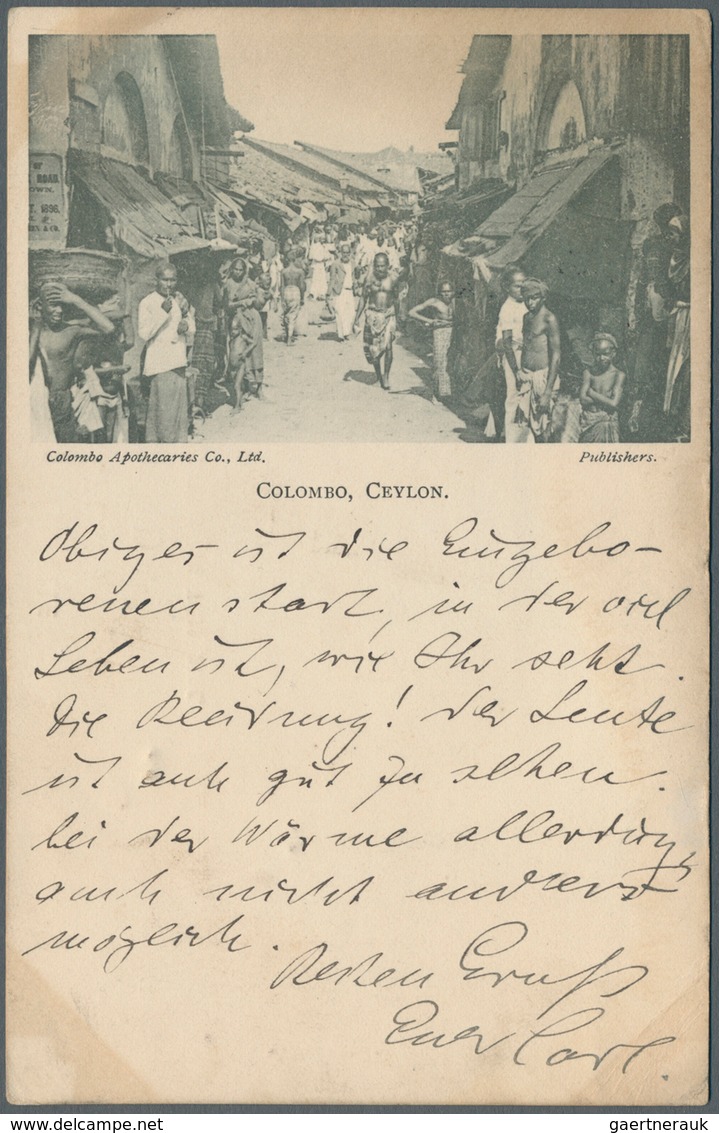 OF
ROAD
OWN.
T. 1896.
& CO.
Colombo Apothecaries Co., Ltd. Publishers.
COLOMBO, CEYLON.
Obiges ist die Eingebo-
renenstadt, in der viel
Leben ist, wie Ihr seht.
Die Kleidung! der Leute
ist auch gut zu sehen.
bei der Wärme allerdings
auch nicht anders
möglich.
Besten Gruß
Euer Carl.
gaertnerauk